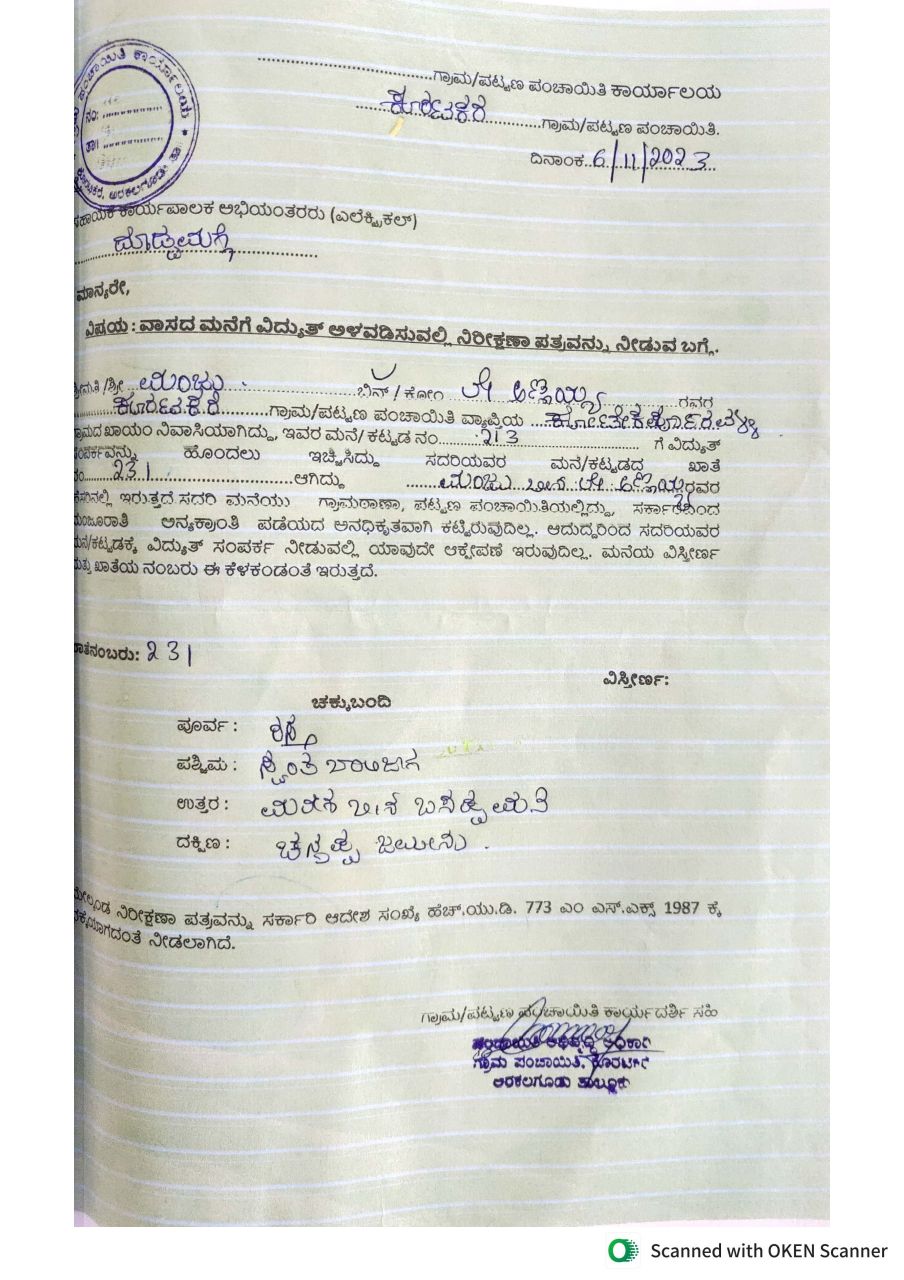 ಪಂಚಾಯಿತಿ ಕಾರ್ಯಾಲಯ
ನಂ:
ತಾ॥
ಅರಕಲಗೂಡು ತಾ.
ಗ್ರಾಮ/ಪಟ್ಟಣ ಪಂಚಾಯಿತಿ ಕಾರ್ಯಾಲಯ
ಗ್ರಾಮ/ಪಟ್ಟಣ ಪಂಚಾಯಿತಿ.
ದಿನಾಂಕ..6/11/2023
ಸಹಾಯಕ ಕಾರ್ಯಪಾಲಕ ಅಭಿಯಂತರರು (ಎಲೆಕ್ಟ್ರಿಕಲ್)
ಮಾನ್ಯರೇ,
ವಿಷಯ : ವಾಸದ ಮನೆಗೆ ವಿದ್ಯುತ್ ಅಳವಡಿಸುವಲ್ಲಿ ನಿರೀಕ್ಷಣಾ ಪತ್ರವನ್ನು ನೀಡುವ ಬಗ್ಗೆ.
ಶ್ರೀಮತಿ /ಶ್ರೀ ಮಂಜು ಬಿನ್ / ಕೋಂ ಲೇ ರವರ
ಗ್ರಾಮ/ಪಟ್ಟಣ ಪಂಚಾಯಿತಿ ವ್ಯಾಪ್ತಿಯ
ಗ್ರಾಮದ ಖಾಯಂ ನಿವಾಸಿಯಾಗಿದ್ದು, ಇವರ ಮನೆ/ ಕಟ್ಟಡ ನಂ. 213 ಗೆ ವಿದ್ಯುತ್
ಸಂಪರ್ಕವನ್ನು ಹೊಂದಲು ಇಚ್ಚಿಸಿದ್ದು ಸದರಿಯವರ ಮನೆ/ಕಟ್ಟಡದ ಖಾತೆ
ನಂ. 231 ಆಗಿದ್ದು ಮಂಜು ಬಿನ್ ಲೇ ರವರ
ಹೆಸರಿನಲ್ಲಿ ಇರುತ್ತದೆ ಸದರಿ ಮನೆಯು ಗ್ರಾಮಠಾಣಾ, ಪಟ್ಟಣ ಪಂಚಾಯಿತಿಯಲ್ಲಿದ್ದು, ಸರ್ಕಾರದಿಂದ
ಮಂಜೂರಾತಿ ಅನ್ಯಕ್ರಾಂತಿ ಪಡೆಯದ ಅನಧಿಕೃತವಾಗಿ ಕಟ್ಟಿರುವುದಿಲ್ಲ. ಆದುದ್ದರಿಂದ ಸದರಿಯವರ
ಮನೆ/ಕಟ್ಟಡಕ್ಕೆ ವಿದ್ಯುತ್ ಸಂಪರ್ಕ ನೀಡುವಲ್ಲಿ ಯಾವುದೇ ಆಕ್ಷೇಪಣೆ ಇರುವುದಿಲ್ಲ. ಮನೆಯ ವಿಸ್ತೀರ್ಣ
ಮತ್ತು ಖಾತೆಯ ನಂಬರು ಈ ಕೆಳಕಂಡಂತೆ ಇರುತ್ತದೆ.
ಖಾತೆನಂಬರು: 231
ವಿಸ್ತೀರ್ಣ:
ಚಕ್ಕುಬಂದಿ
ಪೂರ್ವ : ರಸ್ತೆ
ಪಶ್ಚಿಮ : ಸ್ವಂತ ಖಾಲಿಜಾಗ
ಉತ್ತರ : ಬಿನ್ ಬಸಪ್ಪ ಮನೆ
ದಕ್ಷಿಣ : ಚನ್ನಪ್ಪ ಜಮೀನು .
ಮೇಲ್ಕಂಡ ನಿರೀಕ್ಷಣಾ ಪತ್ರವನ್ನು ಸರ್ಕಾರಿ ಆದೇಶ ಸಂಖ್ಯೆ ಹೆಚ್.ಯು.ಡಿ. 773 ಎಂ ಎಸ್.ಎಕ್ಸ್ 1987 ಕ್ಕೆ
ಧಕ್ಕೆಯಾಗದಂತೆ ನೀಡಲಾಗಿದೆ.
ಗ್ರಾಮ/ಪಟ್ಟಣ ಪಂಚಾಯಿತಿ ಕಾರ್ಯದರ್ಶಿ ಸಹಿ
ಪಂಚಾಯಿತಿ ಅಭಿವೃದ್ಧಿ ಅಧಿಕಾರಿ
ಗ್ರಾಮ ಪಂಚಾಯಿತಿ,
ಅರಕಲಗೂಡು ತಾಲ್ಲೂಕು
Scanned with OKEN Scanner